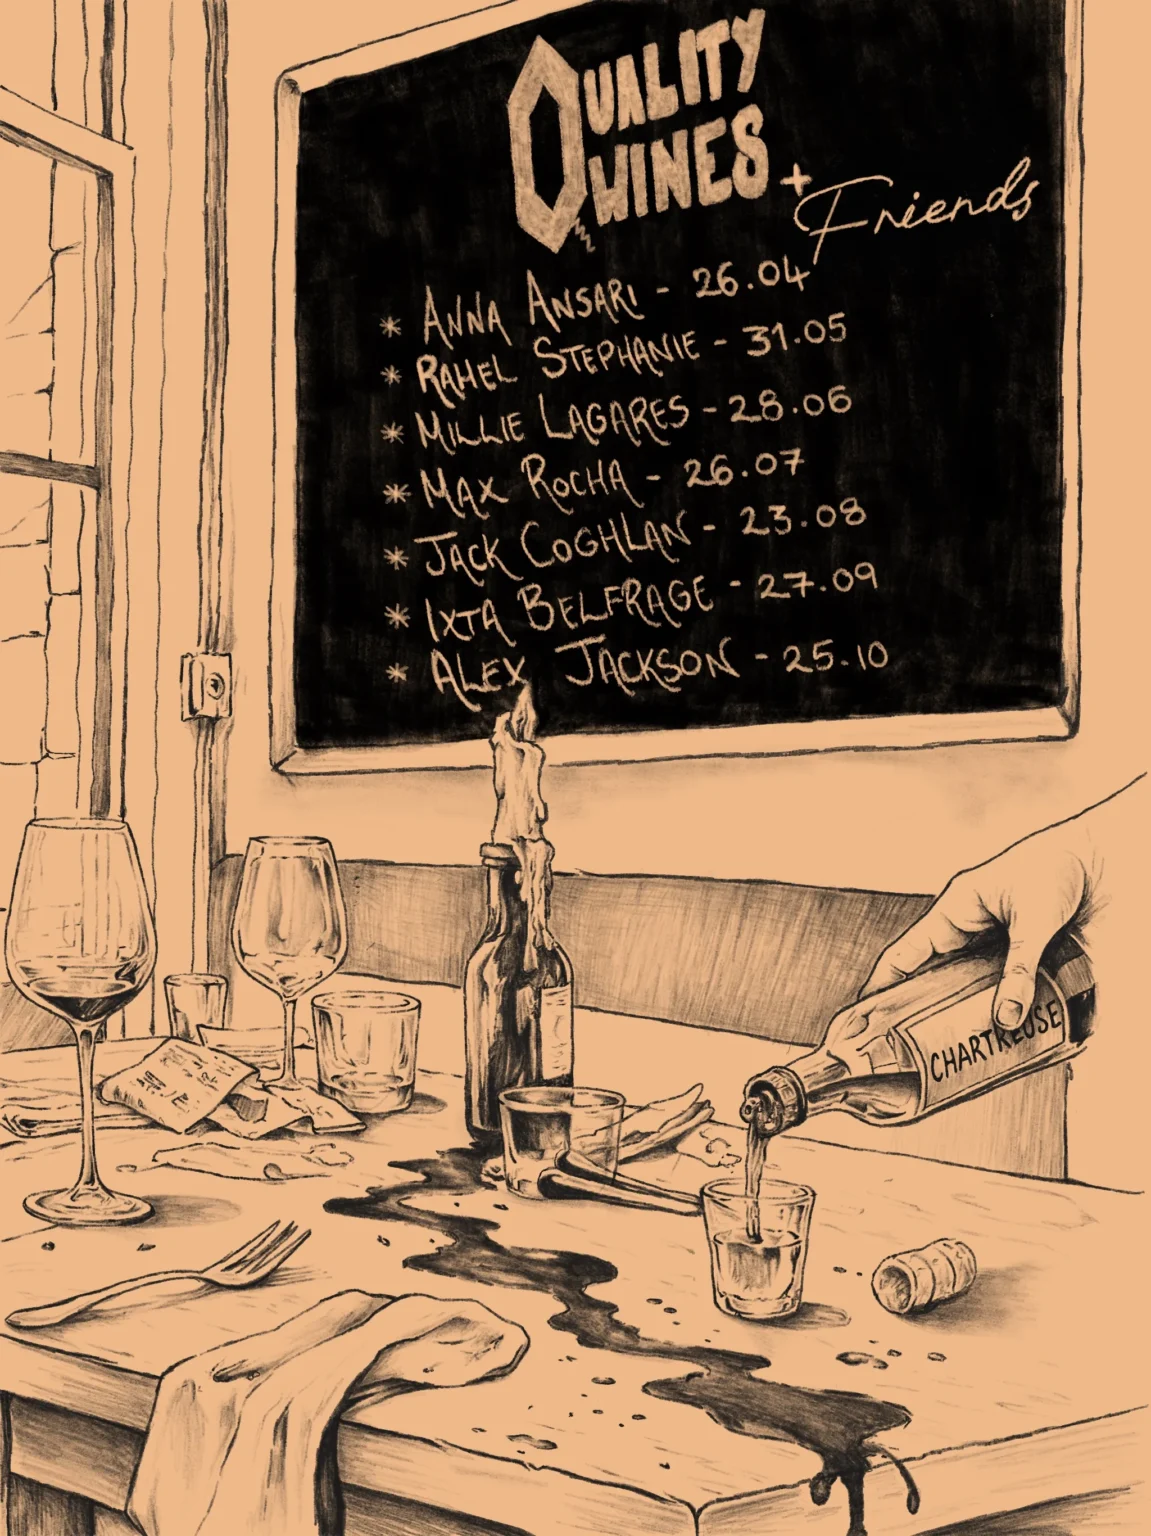 QUALITY
WINES
+ Friends
* ANNA ANSARI - 26.04
* RAHEL STEPHANIE - 31.05
* MILLIE LAGARES - 28.06
* MAX ROCHA - 26.07
* JACK COGHLAN - 23.08
* IXTA BELFRAGE - 27.09
* ALEX JACKSON - 25.10
CHARTREUSE